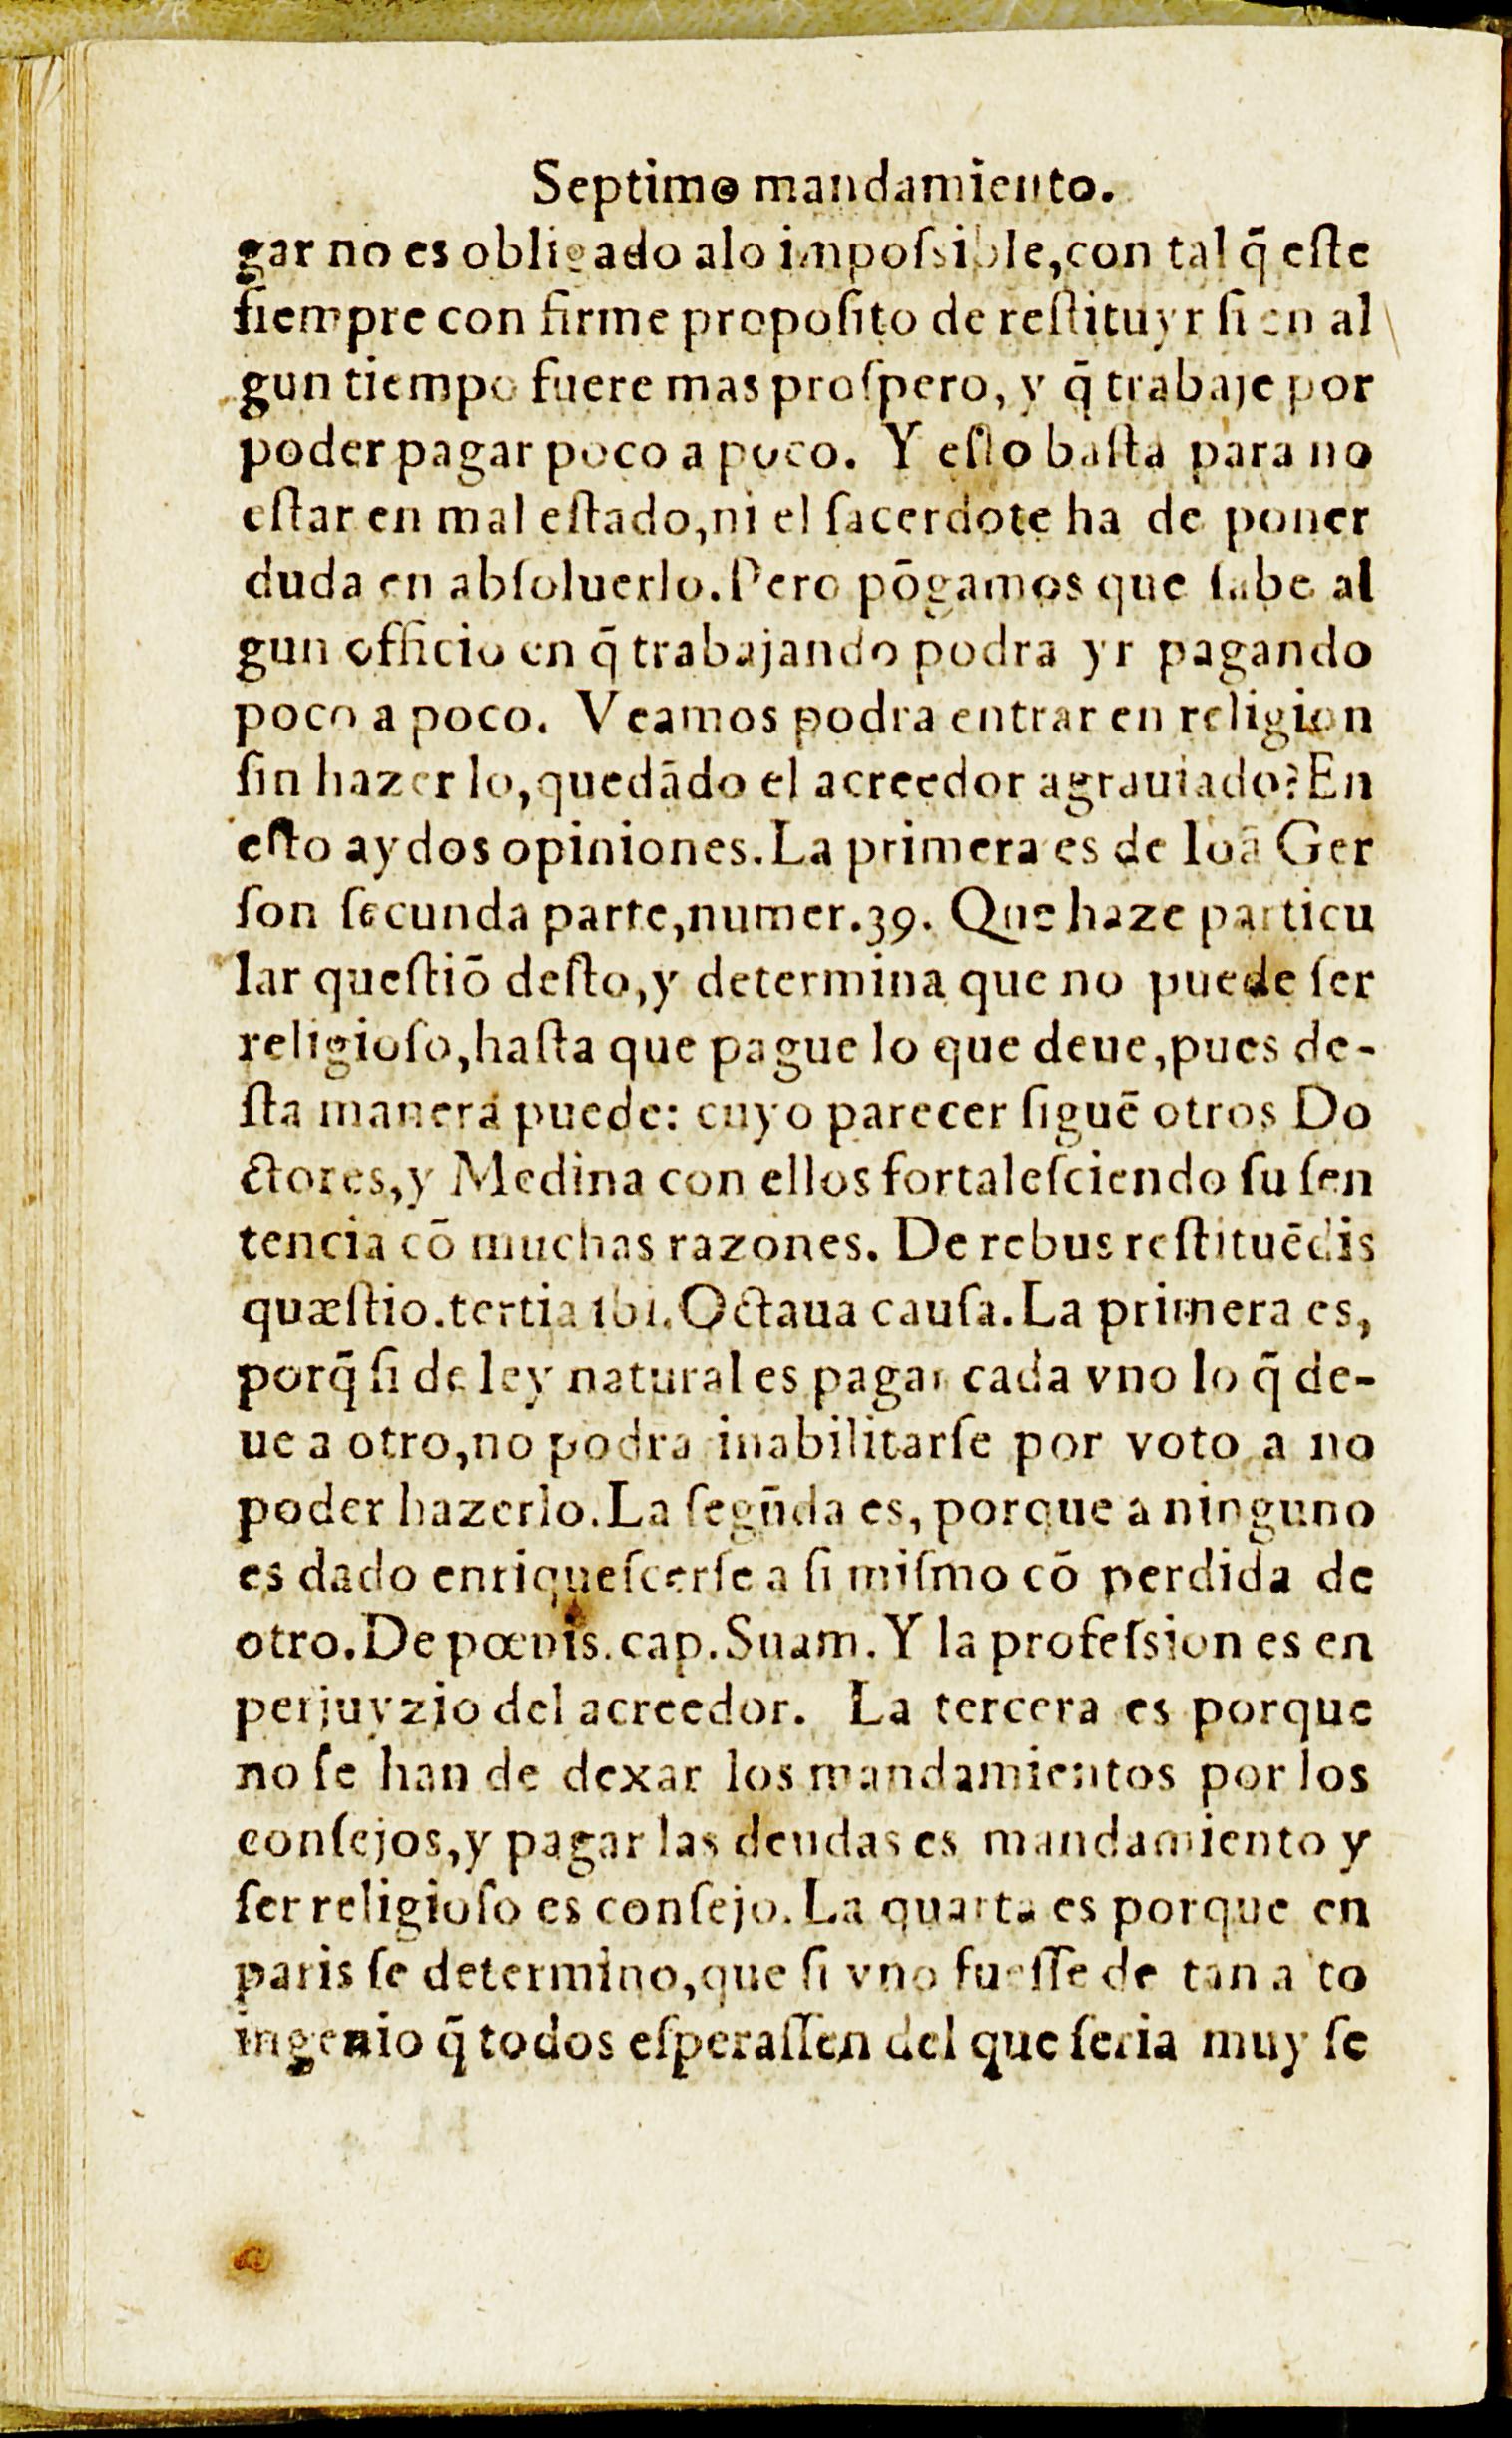 Septimo mandamiento.
gar no es obligado alo impoſsible,con tal q̃ eſte
ſiempre con firme propoſito de reſtituyr ſi en al
gun tiempo fuere mas proſpero, y q̃ trabaje por
poder pagar poco a poco. Y eſto baſta para no
eſtar en mal eſtado,ni el ſacerdote ha de poner
duda en abſoluerlo.Pero põgamos que ſabe al
gun officio en q̃ trabajando podra yr pagando
poco a poco. Veamos podra entrar en religion
ſin hazer lo,quedãdo el acreedor agrauiado?En
eſto ay dos opiniones.La primera es de Ioã Ger
ſon ſecunda parte,numer.39. Que haze particu
lar queſtiõ deſto,y determina que no puede ſer
religioſo,haſta que pague lo que deue,pues de-
ſta manera puede: cuyo parecer ſiguẽ otros Do
ctores,y Medina con ellos fortaleſciendo ſu ſen
tencia cõ muchas razones. De rebus reſtituẽdis
quæſtio.tertia ibi.Octaua cauſa.La primera es,
porq̃ ſi de ley natural es pagar cada vno lo q̃ de-
ue a otro,no podra inabilitarſe por voto a no
poder hazerlo.La ſegũda es, porque a ninguno
es dado enriqueſcerſe a ſi miſmo cõ perdida de
otro.De pœnis.cap.Suam.Y la profeſsion es en
perjuyzio del acreedor. La tercera es porque
no ſe han de dexar los mandamientos por los
conſejos,y pagar las deudas es mandamiento y
ſer religioſo es conſejo.La quarta es porque en
paris ſe determino,que ſi vno fueſſe de tan alto
ingenio q̃ todos eſperaſſen del que ſeria muy ſe